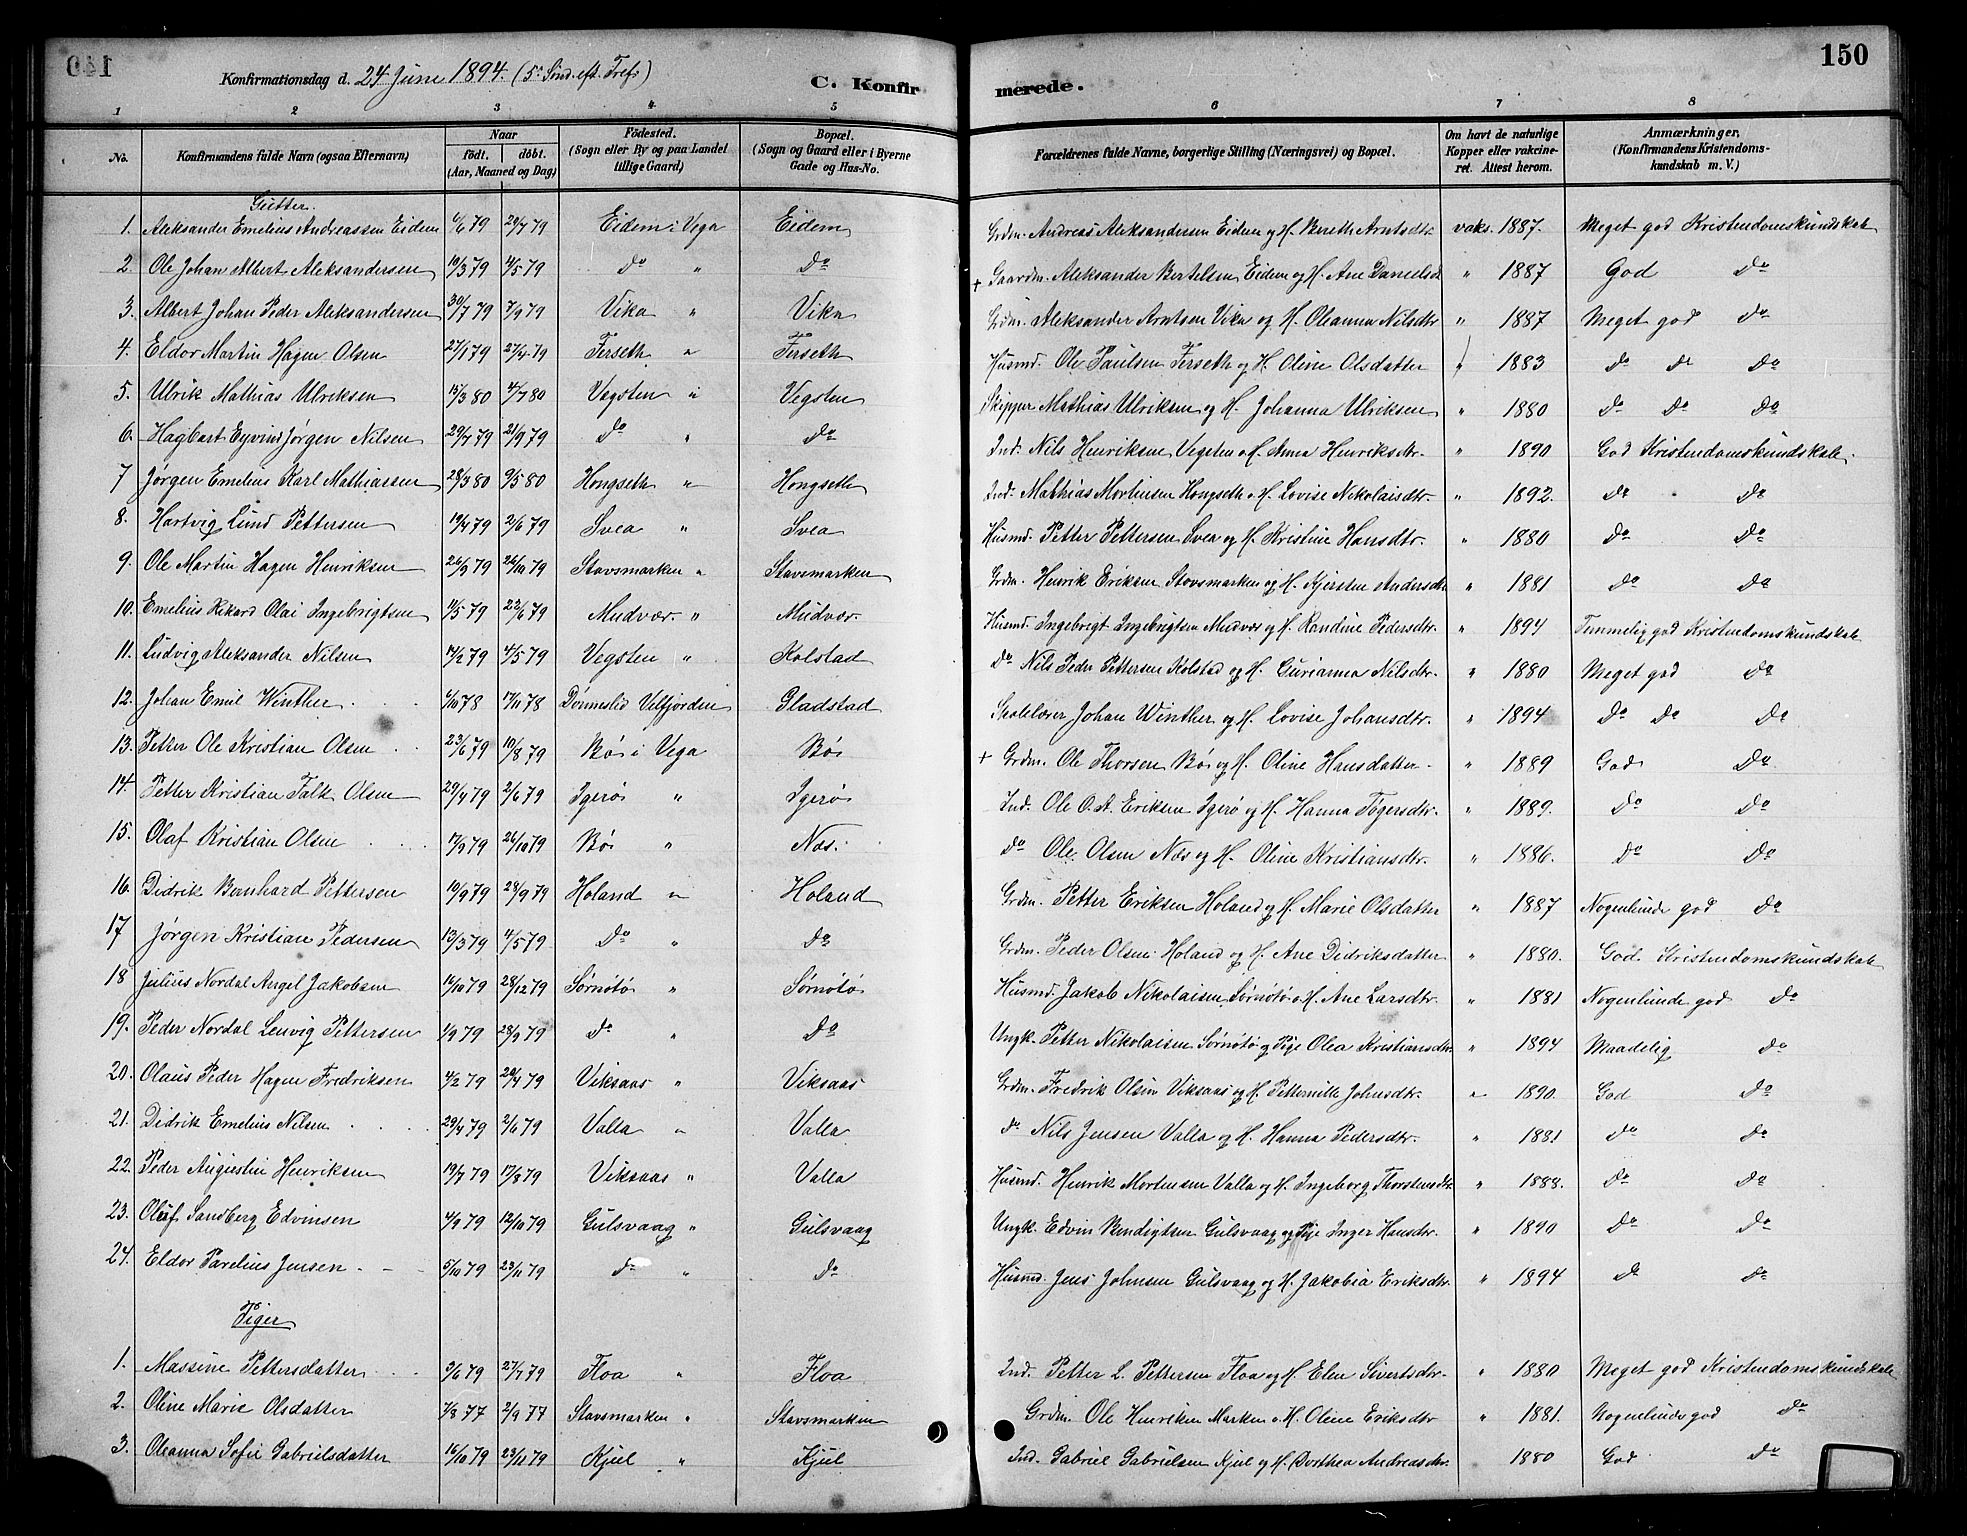 150
Konfirmationsdag d. 24 Juni 1894. (5. Snd. eft. Trefr)
C. Konfirmerede.
1 2 3 4 5 6 7 8
No. Konfirmandens fulde Navn (ogsaa Efternavn) Naar født. døbt. (Aar, Maaned og Dag) Födested. (Sogn eller By og paa Landet tillige Gaard) Bopæl. (Sogn og Gaard eller i Byerne Gade og Hus-No. Forældrenes fulde Navne, borgerlige Stilling (Næringsvei) og Bopæl. Om havt de naturlige Kopper eller vakcineret. Attest herom. Anmærkninger, (Konfirmandens Kristendomskundskab m. V.)
Gutter.
1. Aleksander Emelius Andreassen Eidem 6/6 79 29/7 79 Eidem i Vega Eidem Grdm. Andreas Aleksandersen Eidem og H. Bereth Arntsdtr. vaks. 1887. Meget god Kristendomskundskab
2. Ole Johan Albert Aleksandersen 19/3 79 4/5 79 do " do + Gaardm. Aleksander Bertelsen Eidem og H. Ane Danielsd " 1887 God do
3. Albert Johan Peder Aleksandersen 30/7 79 7/9 79 Vika " Vika Grdm. Aleksander Arntsen Vika og H. Oleanna Nilsdtr " 1887 Meget god do
4. Eldor Martin Hagen Olsen 27/1 79 27/4 79 Ferseth " Ferseth Husmd. Ole Paulsen Ferseth og H. Oline Olsdatter " 1883 do do do
5. Ulrik Mathias Ulriksen 15/3 80 4/7 80 Vegsten " Vegsten Skipper Mathias Ulriksen og H. Johanna Ulriksen " 1880 do do do
6. Hagbart Eyvind Jørgen Nilsen 29/7 79 21/9 79 do " do Ind. Nils Henriksen Vegsten o H. Anna Henriksdtr. " 1890 God Kristendomskundskab.
7 Jørgen Emelius Karl Mathiassen 28/3 80 9/5 80 Hongseth " Hongseth Ind. Mathias Mortensen Hongseth o H. Lovise Nikolaisdtr. " 1892. do do
8. Hartvig Lund Pettersen 19/4 79 2/6 79 Svea " Svea Husmd. Petter Pettersen Svea og H. Kristine Hansdtr. " 1880 do do
9. Ole Martin Hagen Henriksen 26/9 79 26/10 79 Stavsmarken " Stavsmarken Grdm. Henrik Eriksen Stavsmarken og H. Kjersten Andersdtr " 1881 do do
10. Emelius Rikard Olai Ingebrigtsen 11/5 79 22/6 79 Mudvær. " Mudvær. Husmd. Ingebrigt Ingebrigtsen Mudvær og H. Randine Pedersdtr. " 1894 Temmelig god Kristendomskundskab
11. Ludvig Aleksander Nilsen 17/2 79 4/5 79 Vegsten " Kolstad do Nils Peder Pettersen Kolstad og H. Gurianna Nilsdtr. " 1880 Meget god do
12. Johan Emil Winther 6/10 78 17/11 78 Dønneslid Velfjorden Gladstad Skolelærer Johan Winther og H. Lovise Johansdtr. " 1894 do do do
13. Petter Ole Kristian Olsen 23/6 79 10/8 79 Bø i Vega Bø + Grdm. Ole Thorsen Bø og H. Oline Hansdatter " 1889 God do
14. Petter Kristian Falk Olsen 29/4 79 2/6 79 Igerø " Igerø Ind. Ole O. A. Eriksen Igerø og H. Hanna Tøgersdtr. " 1889. do do
15. Olaf Kristian Olsen 17/9 79 26/10 79 Bø " Næs. do Ole Olsen Næs og H. Oline Kristiansdtr. " 1886. do do
16. Didrik Bernhard Pettersen 10/9 79 28/9 79 Holand " Holand Grdm. Petter Eriksen Holand og H. Marie Olsdatter " 1887 Nogenlunde god do
17 Jørgen Kristian Pedersen 13/3 79 4/5 79 do " do Grdm. Peder Olsen Holand og H. Ane Didriksdatter " 1880. God Kristendomskundskab
18 Julius Nordal Angel Jakobsen 14/10 79 28/12 79 Sørnøtø " Sørnøtø Husmd. Jakob Nikolaisen Sørnøtø o H. Ane Larsdtr. " 1881 Nogenlunde god do
19. Peder Nordal Lenvig Pettersen 1/9 79 28/9 79 do " do Ungk. Petter Nikolaisen Sørnøtø og Pige Olea Kristiansdtr. " 1894 Maadelig do
20. Olaus Peder Hagen Fredriksen 4/2 79 20/4 79 Viksaas " Viksaas Grdm. Fredrik Olsen Viksaas og H. Petternille Johnsdtr. " 1890. God do
21. Didrik Emelius Nilsen 29/4 79 2/6 79 Valla " Valla do Nils Jensen Valla og H. Hanna Pedersdtr. " 1881 do do
22. Peder Augustin Henriksen 19/7 79 17/8 79 Viksaas " Valla Husmd. Henrik Mortensen Valla og H. Ingeborg Thorstensdtr " 1888. do do
23. Olaf Sandberg Edvinsen 4/9 79 12/10 79 Gulsvaag " Gulsvaag Ungk. Edvin Bendigtsen Gulsvaag og Pige Inger Hansdtr. " 1890 do do
24. Eldor Parelius Jensen 5/10 79 23/11 79 do " do Husmd. Jens Johnsen Gulsvaag og H. Jakobia Eriksdtr. " 1894 do do
Piger
1. Massine Pettersdatter 3/6 79 27/7 79 Floa " Floa Ind. Petter L. Pettersen Floa og H. Elen Sivertsdtr. " 1880 Meget god Kristendomskundskab
2. Oline Marie Olsdatter 7/8 77 2/9 77 Stavsmarken " Stavsmarken Grdm. Ole Henriken Marken o H. Oline Eriksdtr " 1881. Nogenlunde god do
3. Oleanna Sofie Gabrielsdatter 16/10 79 23/11 79 Kjul " Kjul Ind. Gabriel Gabrielsen Kjul og H. Dorthea Andreasdtr. 1880 God do